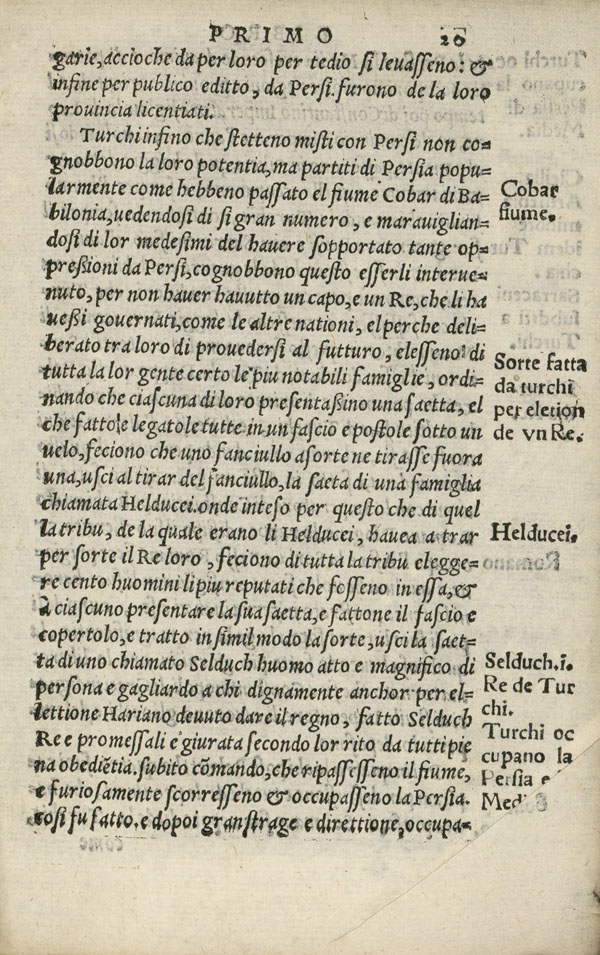 PRIMO 20
garie, accioche da per loro per tedio si levasseno: &
infine per publico editto, da Persi. furono de la loro
provincia licentiati.
Turchi infino che stetteno misti con Persi non co=
gnobbono la loro potentia, ma partiti di Persia popu=
larmente come hebbeno passato el fiume Cobar di Ba=
bilonia, uedendosi di si gran numero, e maraviglian=
dosi di lor medesimi del hauere sopportato tante op=
pressioni da Persi, cognobbono questo esserli interue=
nuto, per non hauer hauutto un capo, e un Re, che li ha
uessi gouernati, come le altre nationi, el perche deli=
berato tra loro di prouedersi al futturo, elesseno di
tutta la lor gente certo le piu notabili famiglie, ordi=
nando che ciascuna di loro presentassino una saetta, el
che fatto e legatole tutte in un fascio e postole sotto un
uelo, feciono che uno fanciullo a sorte ne tirasse fuora
una, usci al tirar del fanciullo, la saeta di una famiglia
chiamata Helducei. onde inteso per questo che di quel
la tribu, de la quale erano li Helducei, hauea a trar
per sorte il Re loro, feciono di tutta la tribu elegge=
re cento huomini li piu reputati che fosseno in essa, &
à ciascuno presentare la sua saetta, e fattone il fascio e
copertolo, e tratto in simil modo la sorte, usci la saet=
ta di uno chiamato Selduch huomo atto e magnifico di
persona e gagliardo a chi dignamente anchor per el=
lettione Hariano deuuto dare il regno, fatto Selduch
Re e promessali e giurata secondo lor rito da tutti pie
na obediẽtia. subito cõmando, che ripassesseno il fiume,
e furiosamente scorresseno & occupasseno la Persia.
cosi fu fatto. e dopoi gran strage e direttione, occupa=
Cobar
fiume.
Sorte fatta
da turchi
per eletion
de vn Re.
Helducei.
Selduch.i.
Re de Tur
chi.
Turchi oc
cupano la
Persia e
Medi